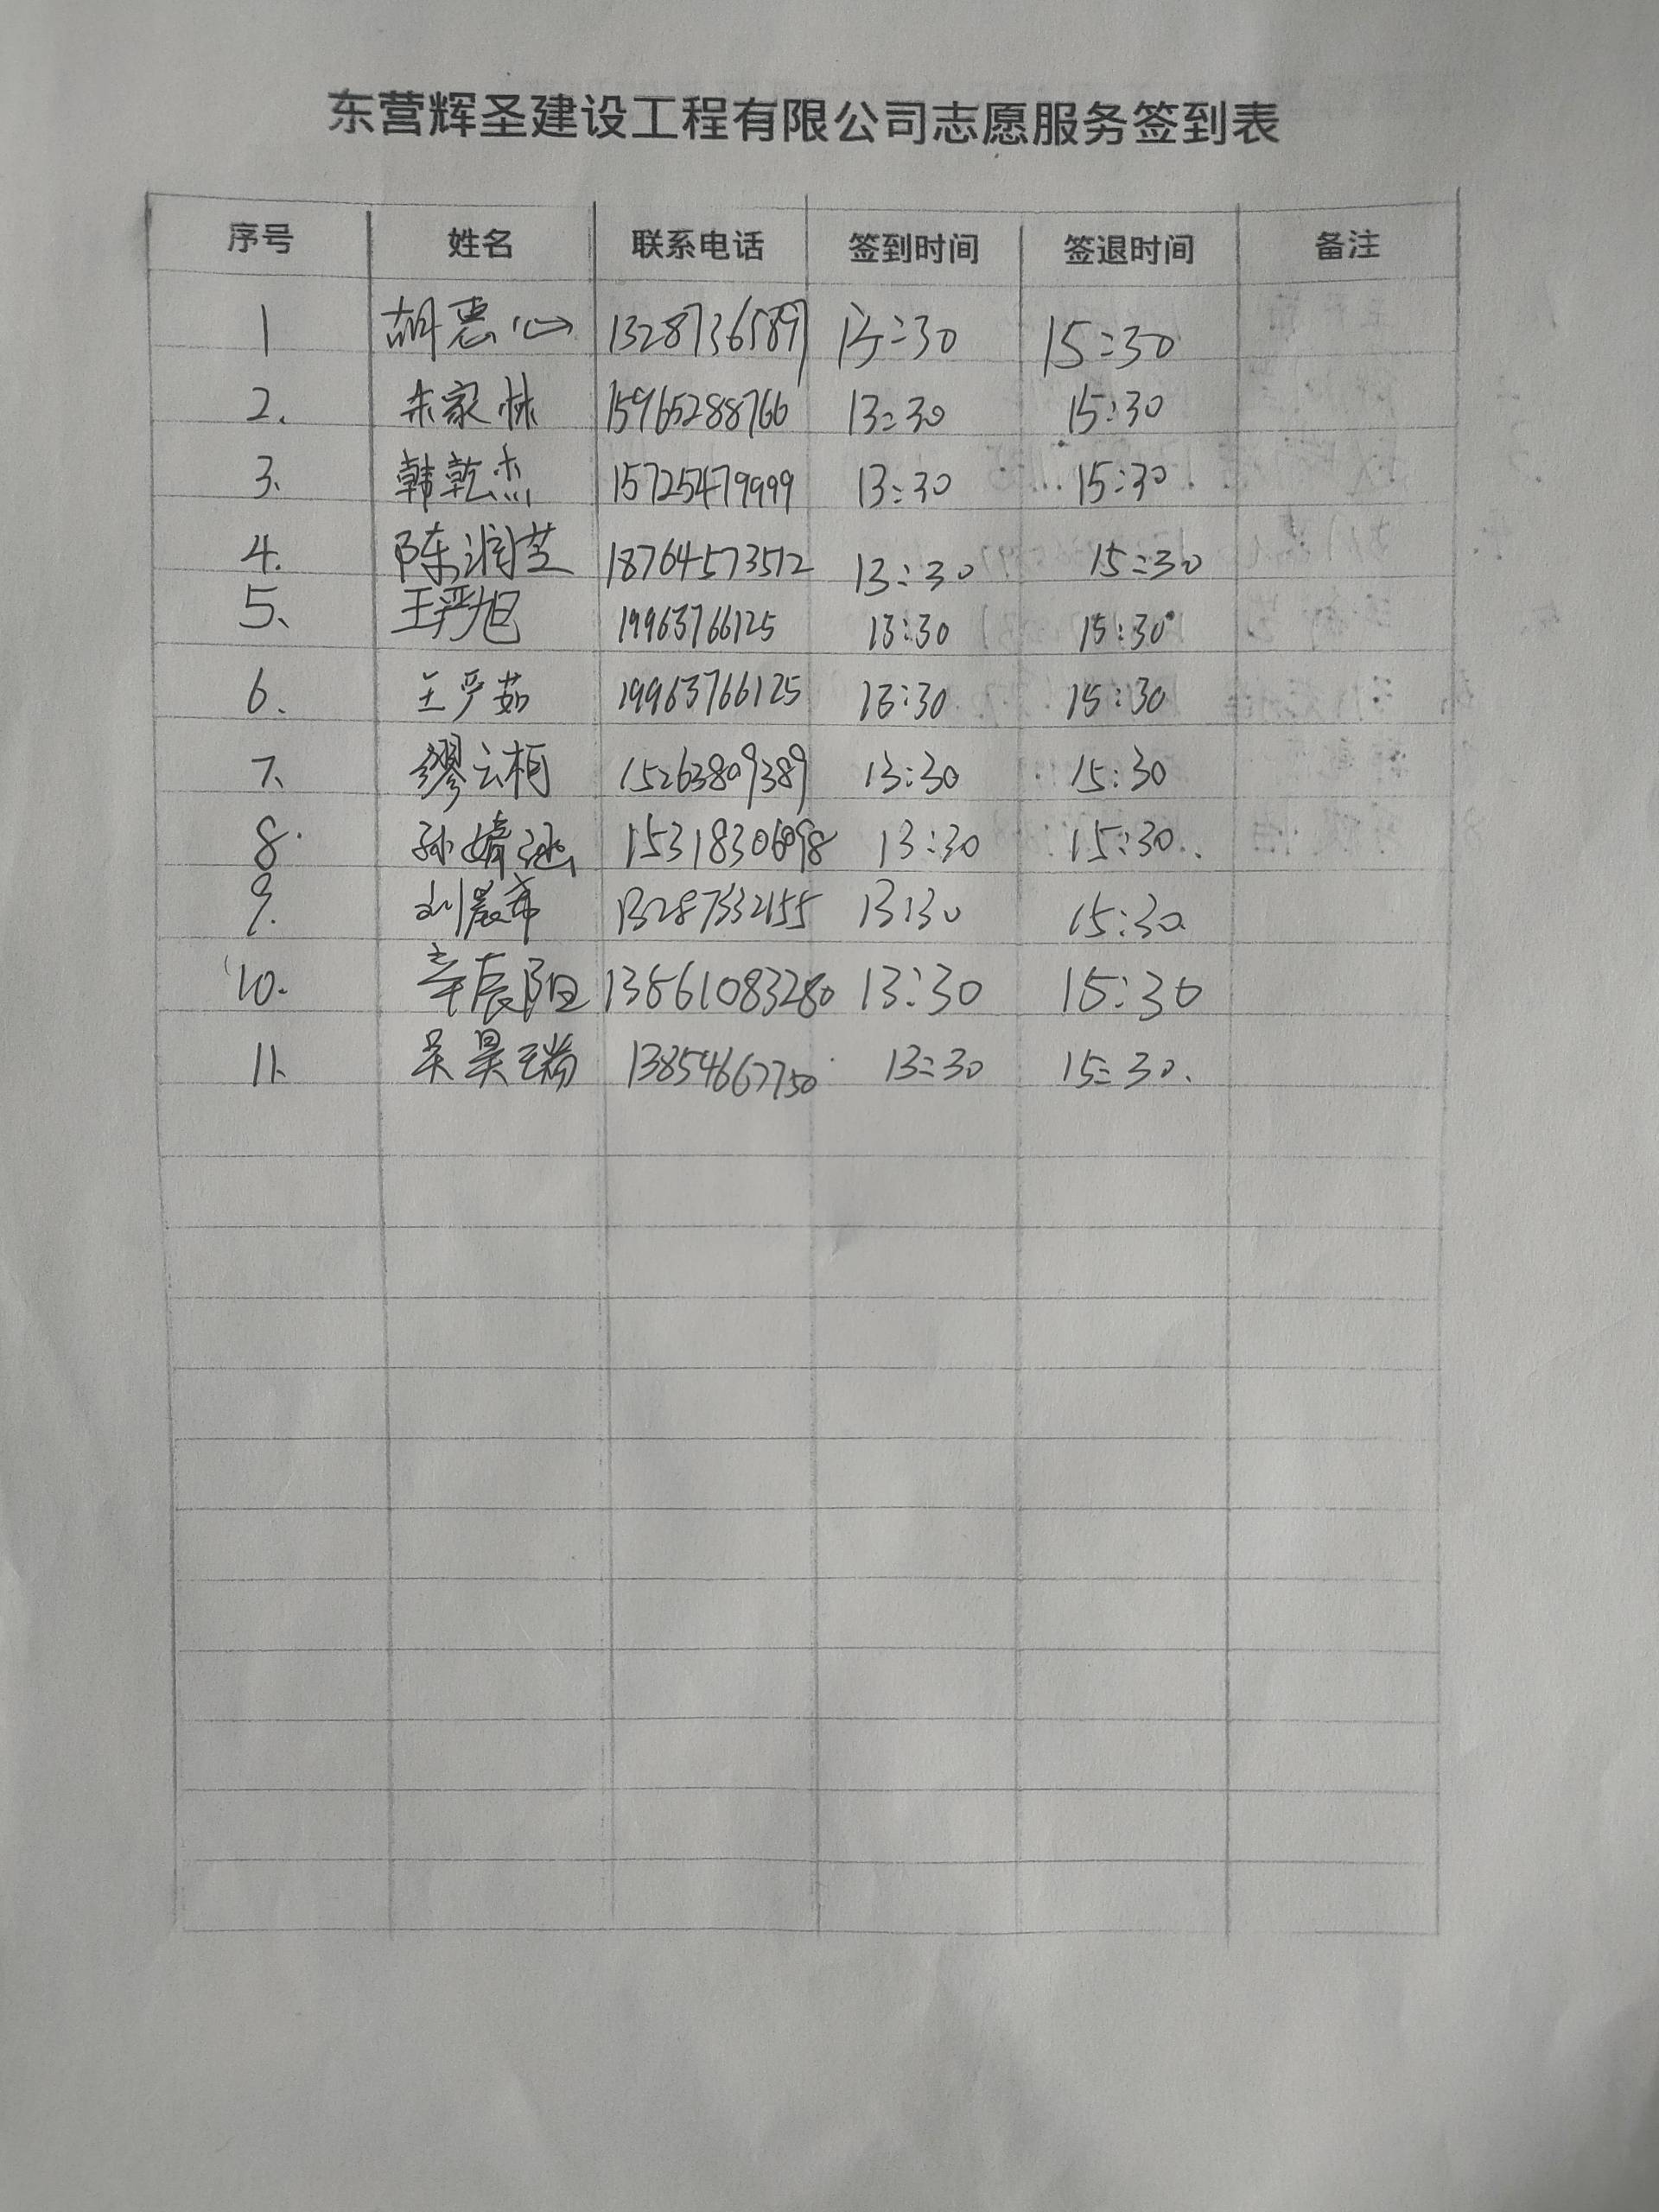 东营辉圣建设工程有限公司志愿服务签到表
序号 姓名 联系电话 签到时间 签退时间 备注
1 胡惠心 13287136589 13:30 15:30
2. 朱家林 15965288766 13:30 15:30
3. 韩乾杰 15725479999 13:30 15:30
4. 陈润芝 18764573512 13:30 15:30
5、 王严旭 19963766125 13:30 15:30
6. 王严茹 19963766125 13:30 15:30
7、 缪云柯 15263809389 13:30 15:30
8. 孙婧涵 15318306098 13:30 15:30.
9. 刘晨希 13287332155 13:30 15:30.
10. 辛辰阳 13561083280 13:30 15:30
11. 吴昊瑞 13854667750 13:30 15:30.